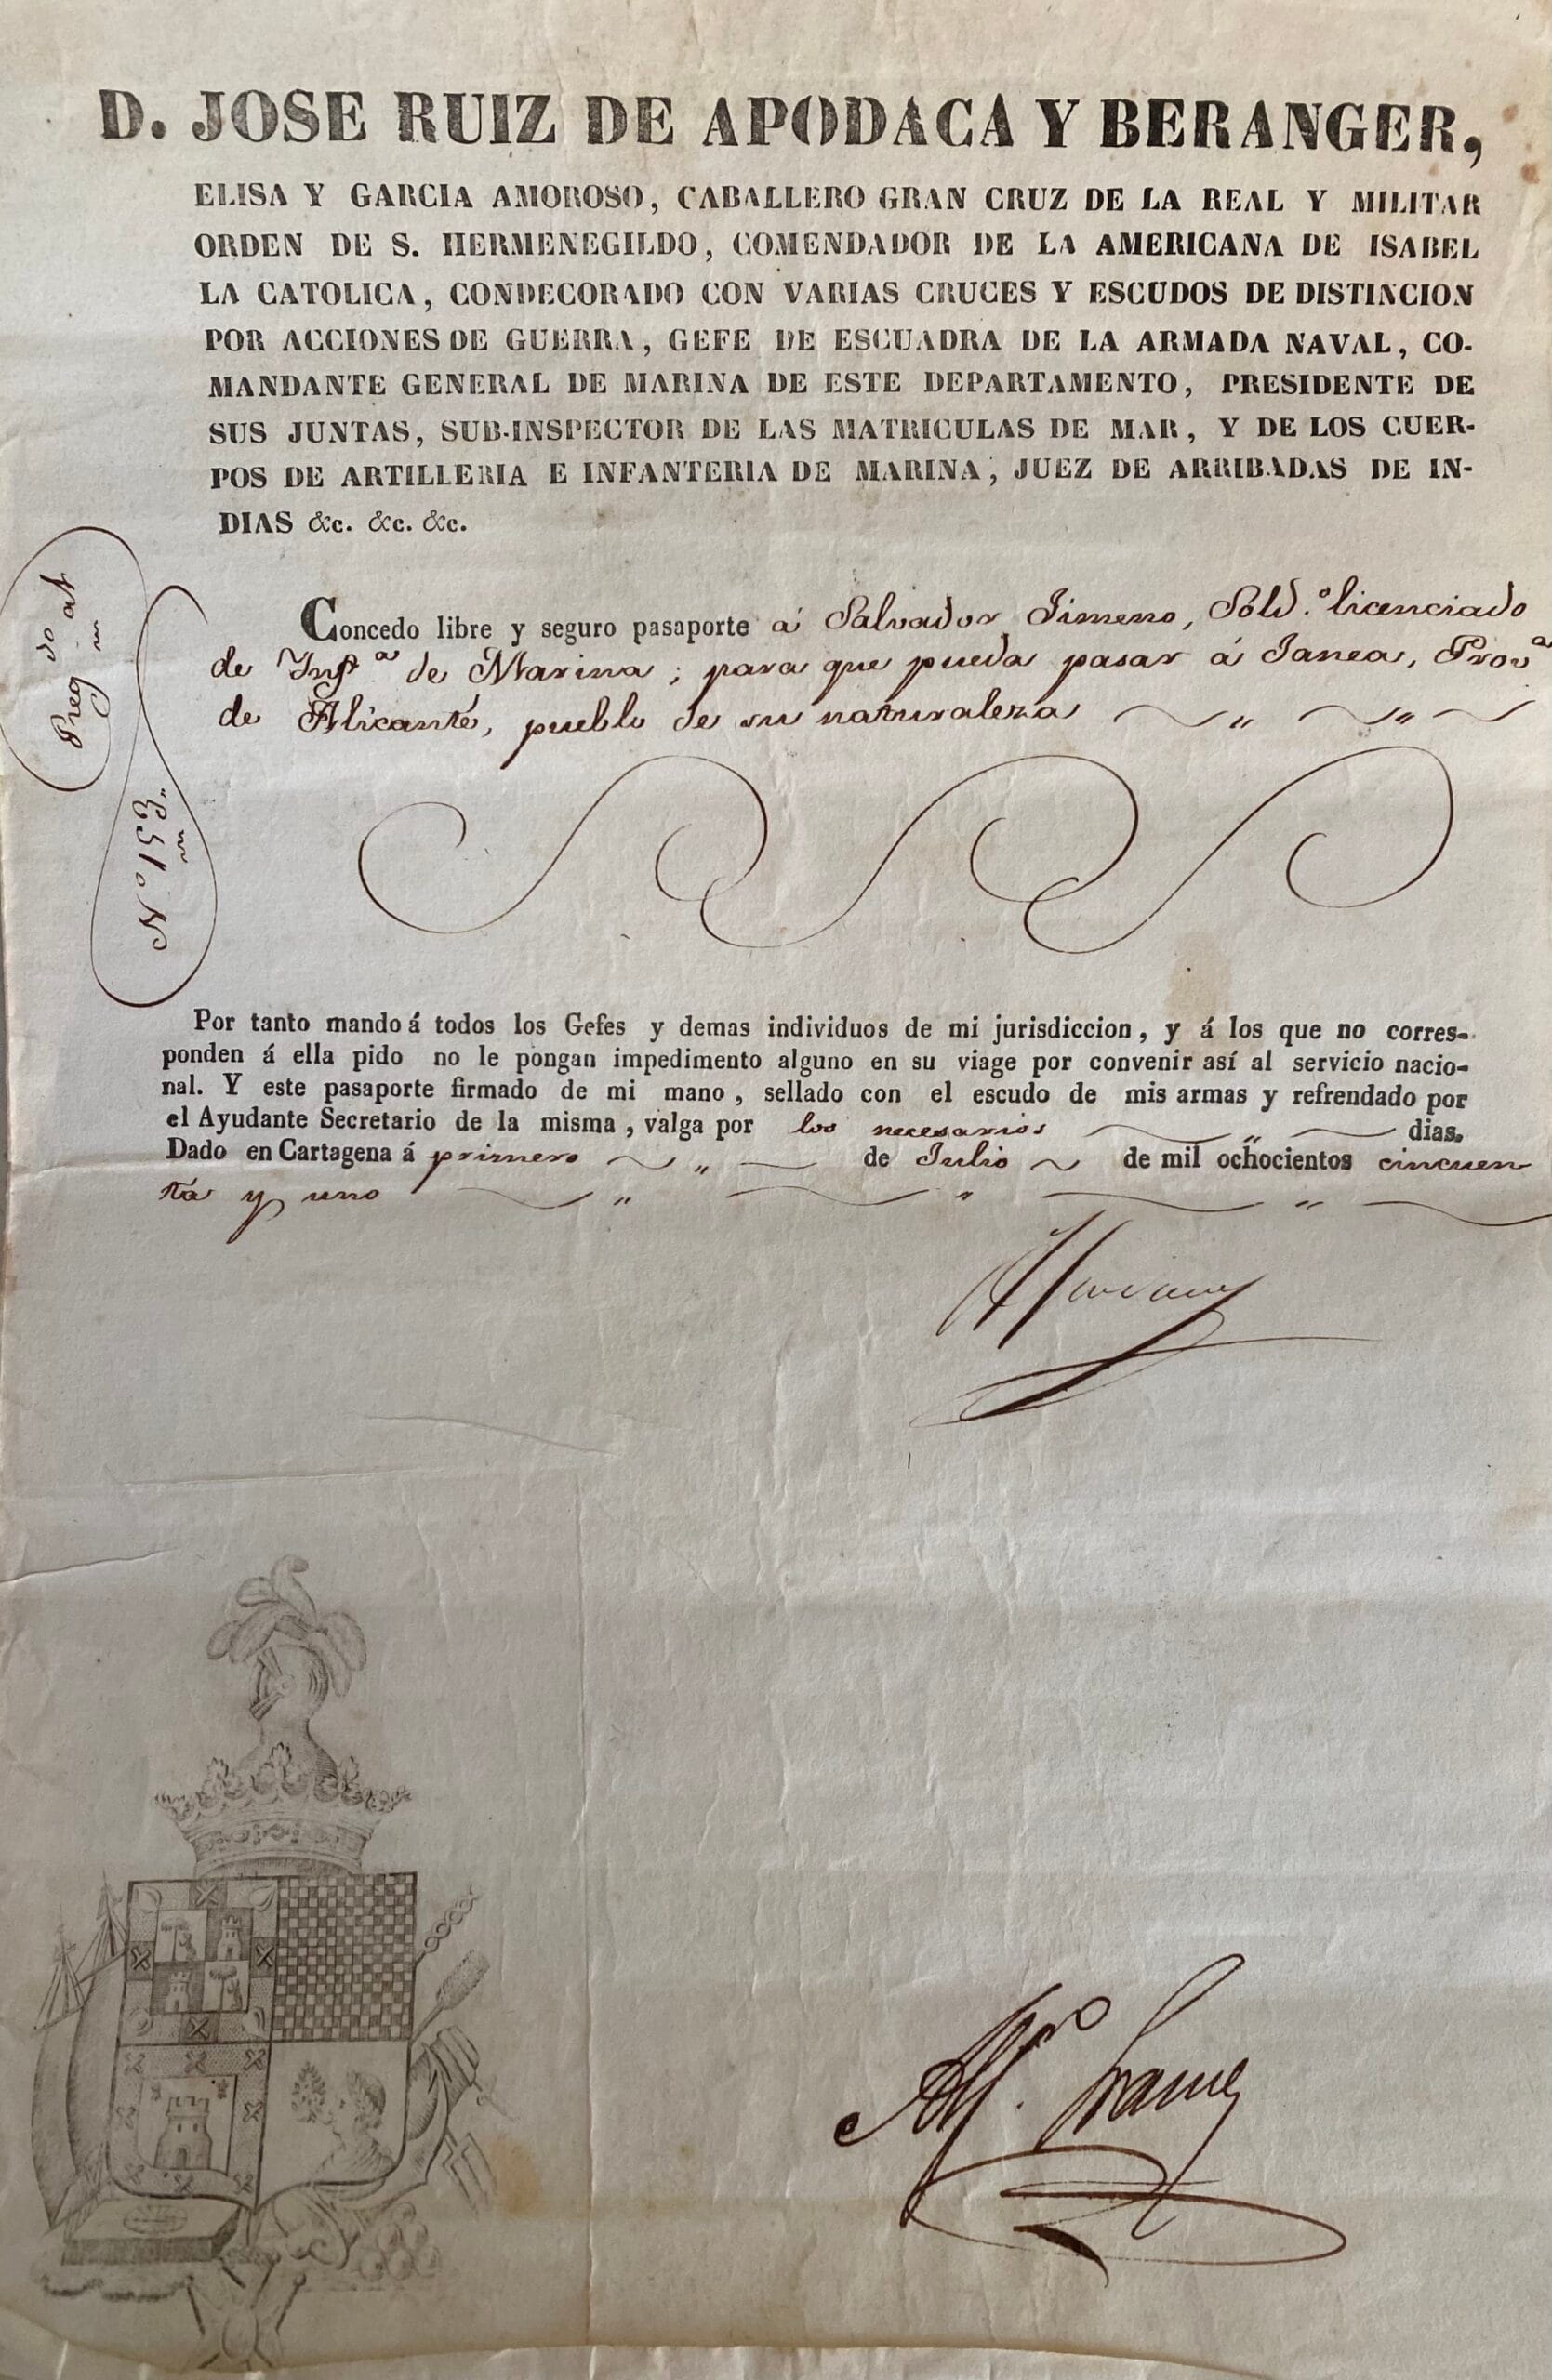 D. JOSE RUIZ DE APODACA Y BERANGER,
ELISA Y GARCIA AMOROSO, CABALLERO GRAN CRUZ DE LA REAL Y MILITAR
ORDEN DE S. HERMENEGILDO, COMENDADOR DE LA AMERICANA DE ISABEL
LA CATOLICA, CONDECORADO CON VARIAS CRUCES Y ESCUDOS DE DISTINCION
POR ACCIONES DE GUERRA, GEFE DE ESCUADRA DE LA ARMADA NAVAL, CO-
MANDANTE GENERAL DE MARINA DE ESTE DEPARTAMENTO, PRESIDENTE DE
SUS JUNTAS, SUB-INSPECTOR DE LAS MATRICULAS DE MAR, Y DE LOS CUER-
POS DE ARTILLERIA E INFANTERIA DE MARINA, JUEZ DE ARRIBADAS DE IN-
DIAS &c. &c. &c.
Concedo libre y seguro pasaporte á Salvador Jimeno, Sold.º licenciado
de Infª de Marina; para que pueda pasar á Janea, Provª
de Alicante, pueblo de su naturaleza
Nº 153
Por tanto mando á todos los Gefes y demas individuos de mi jurisdiccion, y á los que no corres-
ponden á ella pido no le pongan impedimento alguno en su viage por convenir así al servicio nacio-
nal. Y este pasaporte firmado de mi mano, sellado con el escudo de mis armas y refrendado por
el Ayudante Secretario de la misma, valga por los necesarios dias.
Dado en Cartagena á primero de Julio de mil ochocientos cincuen
ta y uno